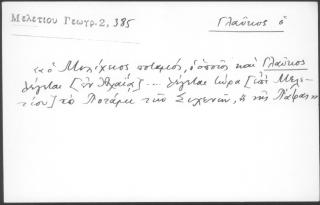 Μελετίου Γεωγρ. 2, 385
Γλαῦκος ὁ
«ὁ Μείλιχιος ποταμός, ὁ ὁποῖος καὶ Γλαῦκος
λέγεται [ἐν Ἀχαΐᾳ] ... λέγεται τώρα [ἐπὶ Μελε-
τίου] τὸ Ποτάμι τῶν Συχενῶν, ἢ τῆς Πάτρας»